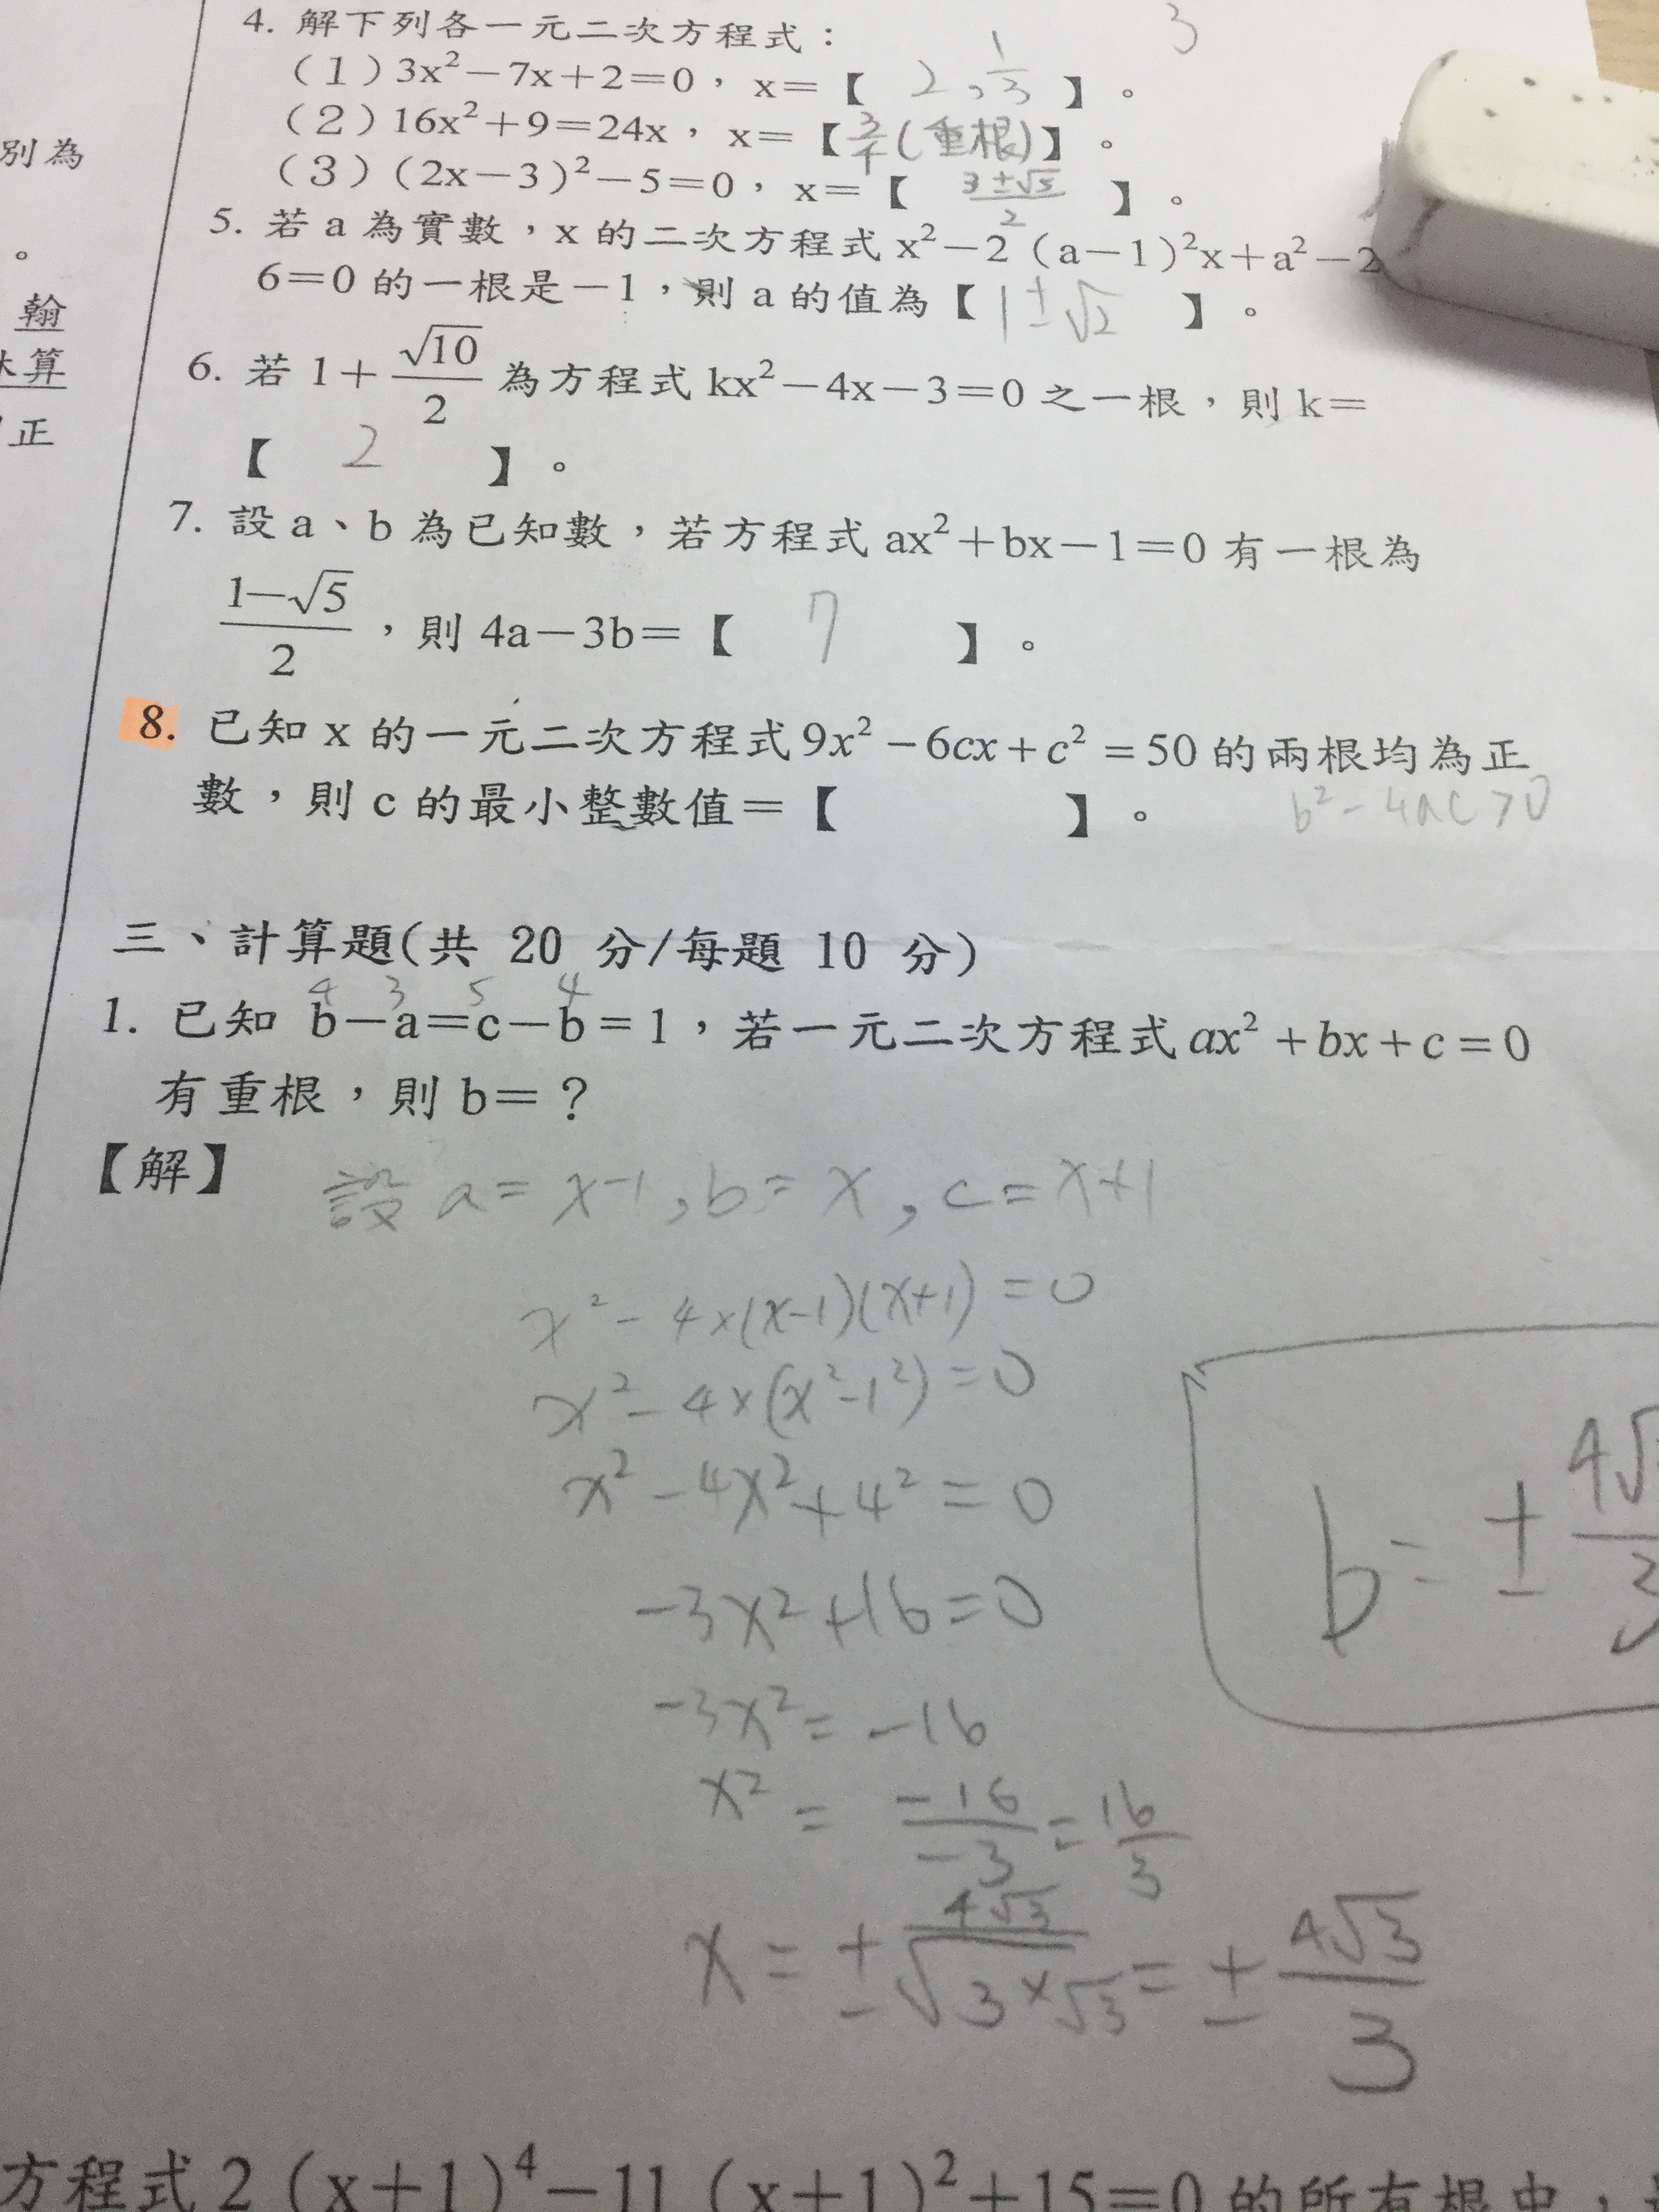 別為
。
翰
算
正
4. 解下列各一元二次方程式：
3
（1）3x²－7x＋2＝0，x＝【 2, 1/3 】。
（2）16x²＋9＝24x，x＝【 3/4 (重根)】。
（3）（2x－3）²－5＝0，x＝【 3±√5/2 】。
5. 若 a 為實數，x 的二次方程式 x²－2（a－1）²x＋a²－2
6＝0 的一根是－1，則 a 的值為【 1±√2 】。
6. 若 1＋√10/2 為方程式 kx²－4x－3＝0 之一根，則 k＝
【 2 】。
7. 設 a、b 為已知數，若方程式 ax²＋bx－1＝0 有一根為
1－√5/2，則 4a－3b＝【 7 】。
8. 已知 x 的一元二次方程式 9x²－6cx＋c²＝50 的兩根均為正
數，則 c 的最小整數值＝【 】。
b²－4ac>0
三、計算題(共 20 分/每題 10 分)
4 3 5 4
1. 已知 b－a＝c－b＝1，若一元二次方程式 ax²＋bx＋c＝0
有重根，則 b＝？
【解】 設 a = x-1, b = x, c = x+1
x² - 4×(x-1)(x+1) = 0
x² - 4×(x²-1²) = 0
x² - 4x² + 4² = 0
-3x² + 16 = 0
b = ± 4√ /3
-3x² = -16
x² = -16/-3 = 16/3
x = ± 4√3/√3×√3 = ± 4√3/3
方程式 2（x＋1）⁴－11（x＋1）²＋15＝0 的所有根中，